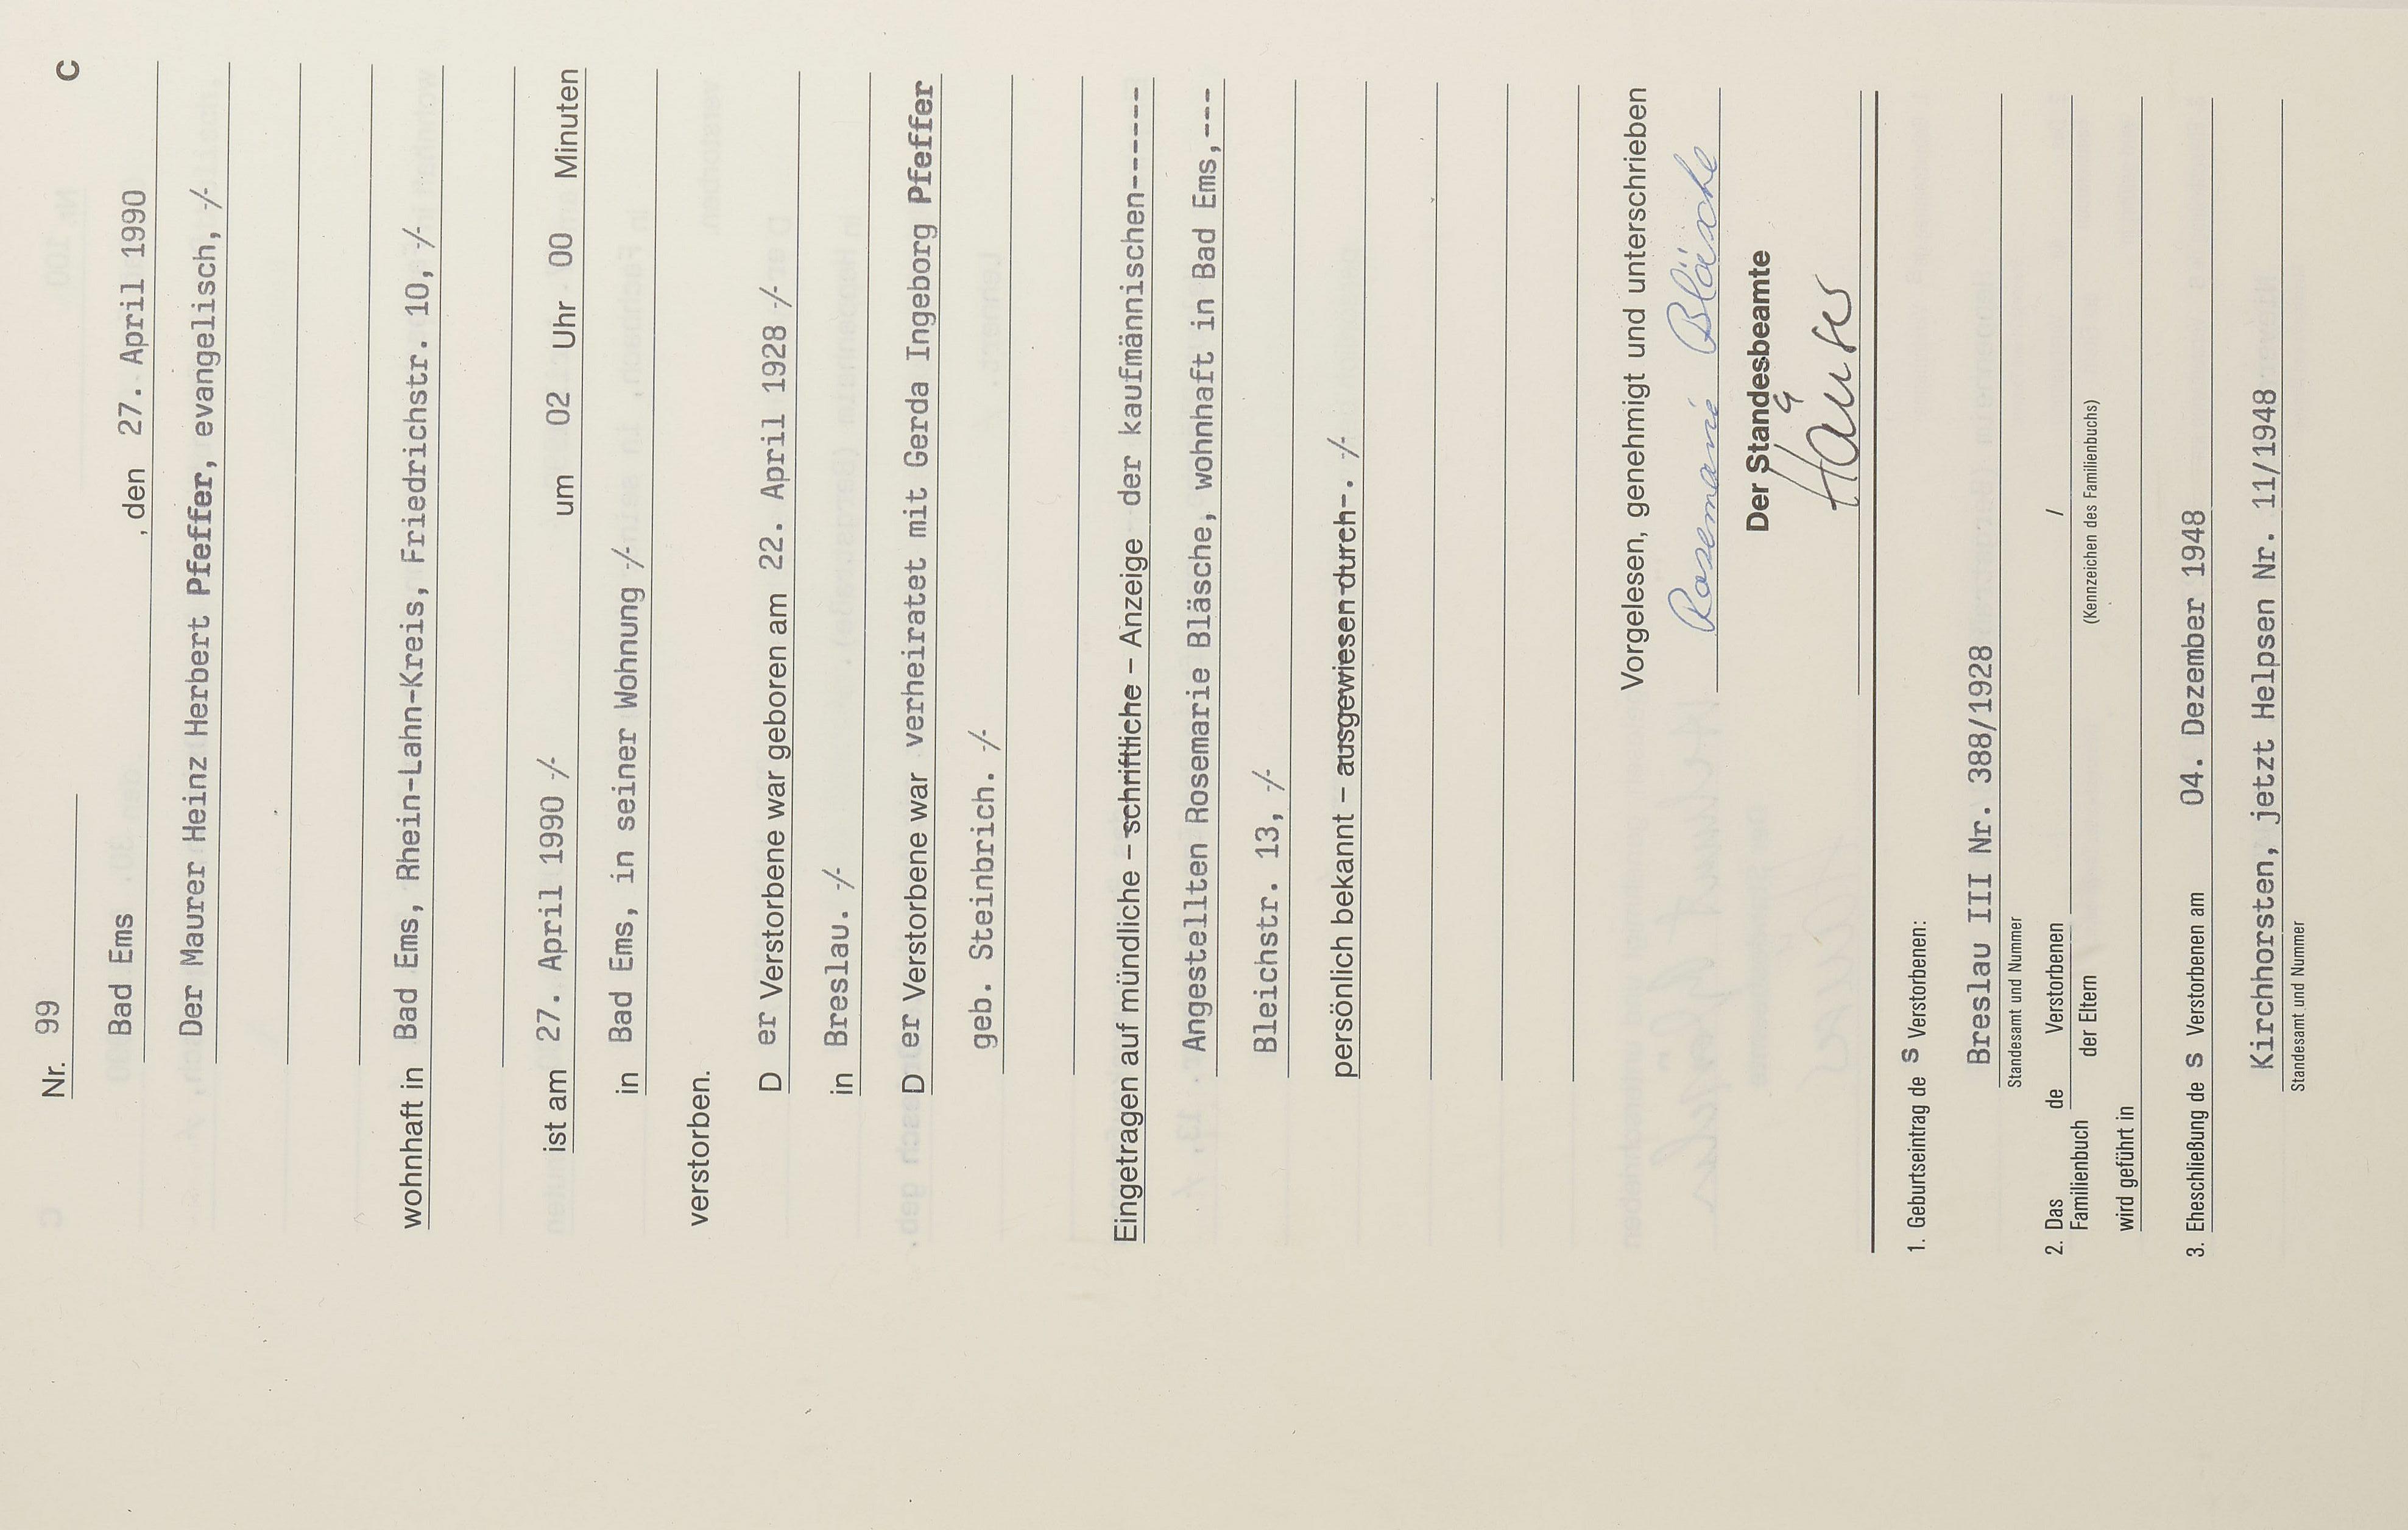 C
Nr. 99
Bad Ems , den 27. April 1990
Der Maurer Heinz Herbert Pfeffer, evangelisch, -/-
wohnhaft in Bad Ems, Rhein-Lahn-Kreis, Friedrichstr. 10, -/-
ist am 27. April 1990 -/- um 02 Uhr 00 Minuten
in Bad Ems, in seiner Wohnung -/-
verstorben.
D er Verstorbene war geboren am 22. April 1928 -/-
in Breslau. -/-
D er Verstorbene war verheiratet mit Gerda Ingeborg Pfeffer
geb. Steinbrich. -/-
Eingetragen auf mündliche – schriftliche – Anzeige der kaufmännischen------
Angestellten Rosemarie Bläsche, wohnhaft in Bad Ems,---
Bleichstr. 13, -/-
persönlich bekannt – ausgewiesen durch-. -/-
Vorgelesen, genehmigt und unterschrieben
Rosemarie Bläsche
Der Standesbeamte
Häuser
1. Geburtseintrag de s Verstorbenen:
Breslau III Nr. 388/1928
Standesamt und Nummer
2. Das de Verstorbenen /
Familienbuch der Eltern (Kennzeichen des Familienbuchs)
wird geführt in
3. Eheschließung de s Verstorbenen am 04. Dezember 1948
Kirchhorsten, jetzt Helpsen Nr. 11/1948
Standesamt und Nummer